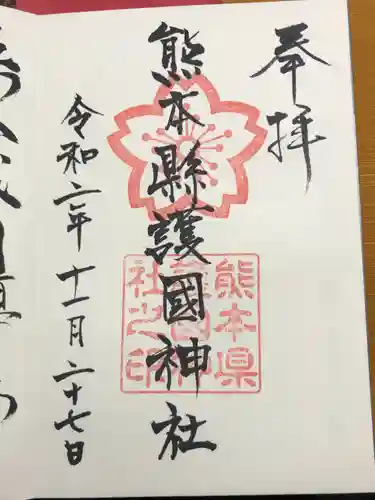 奉拝
熊本縣護國神社
熊本県護国神社之印
令和二年十一月二十七日